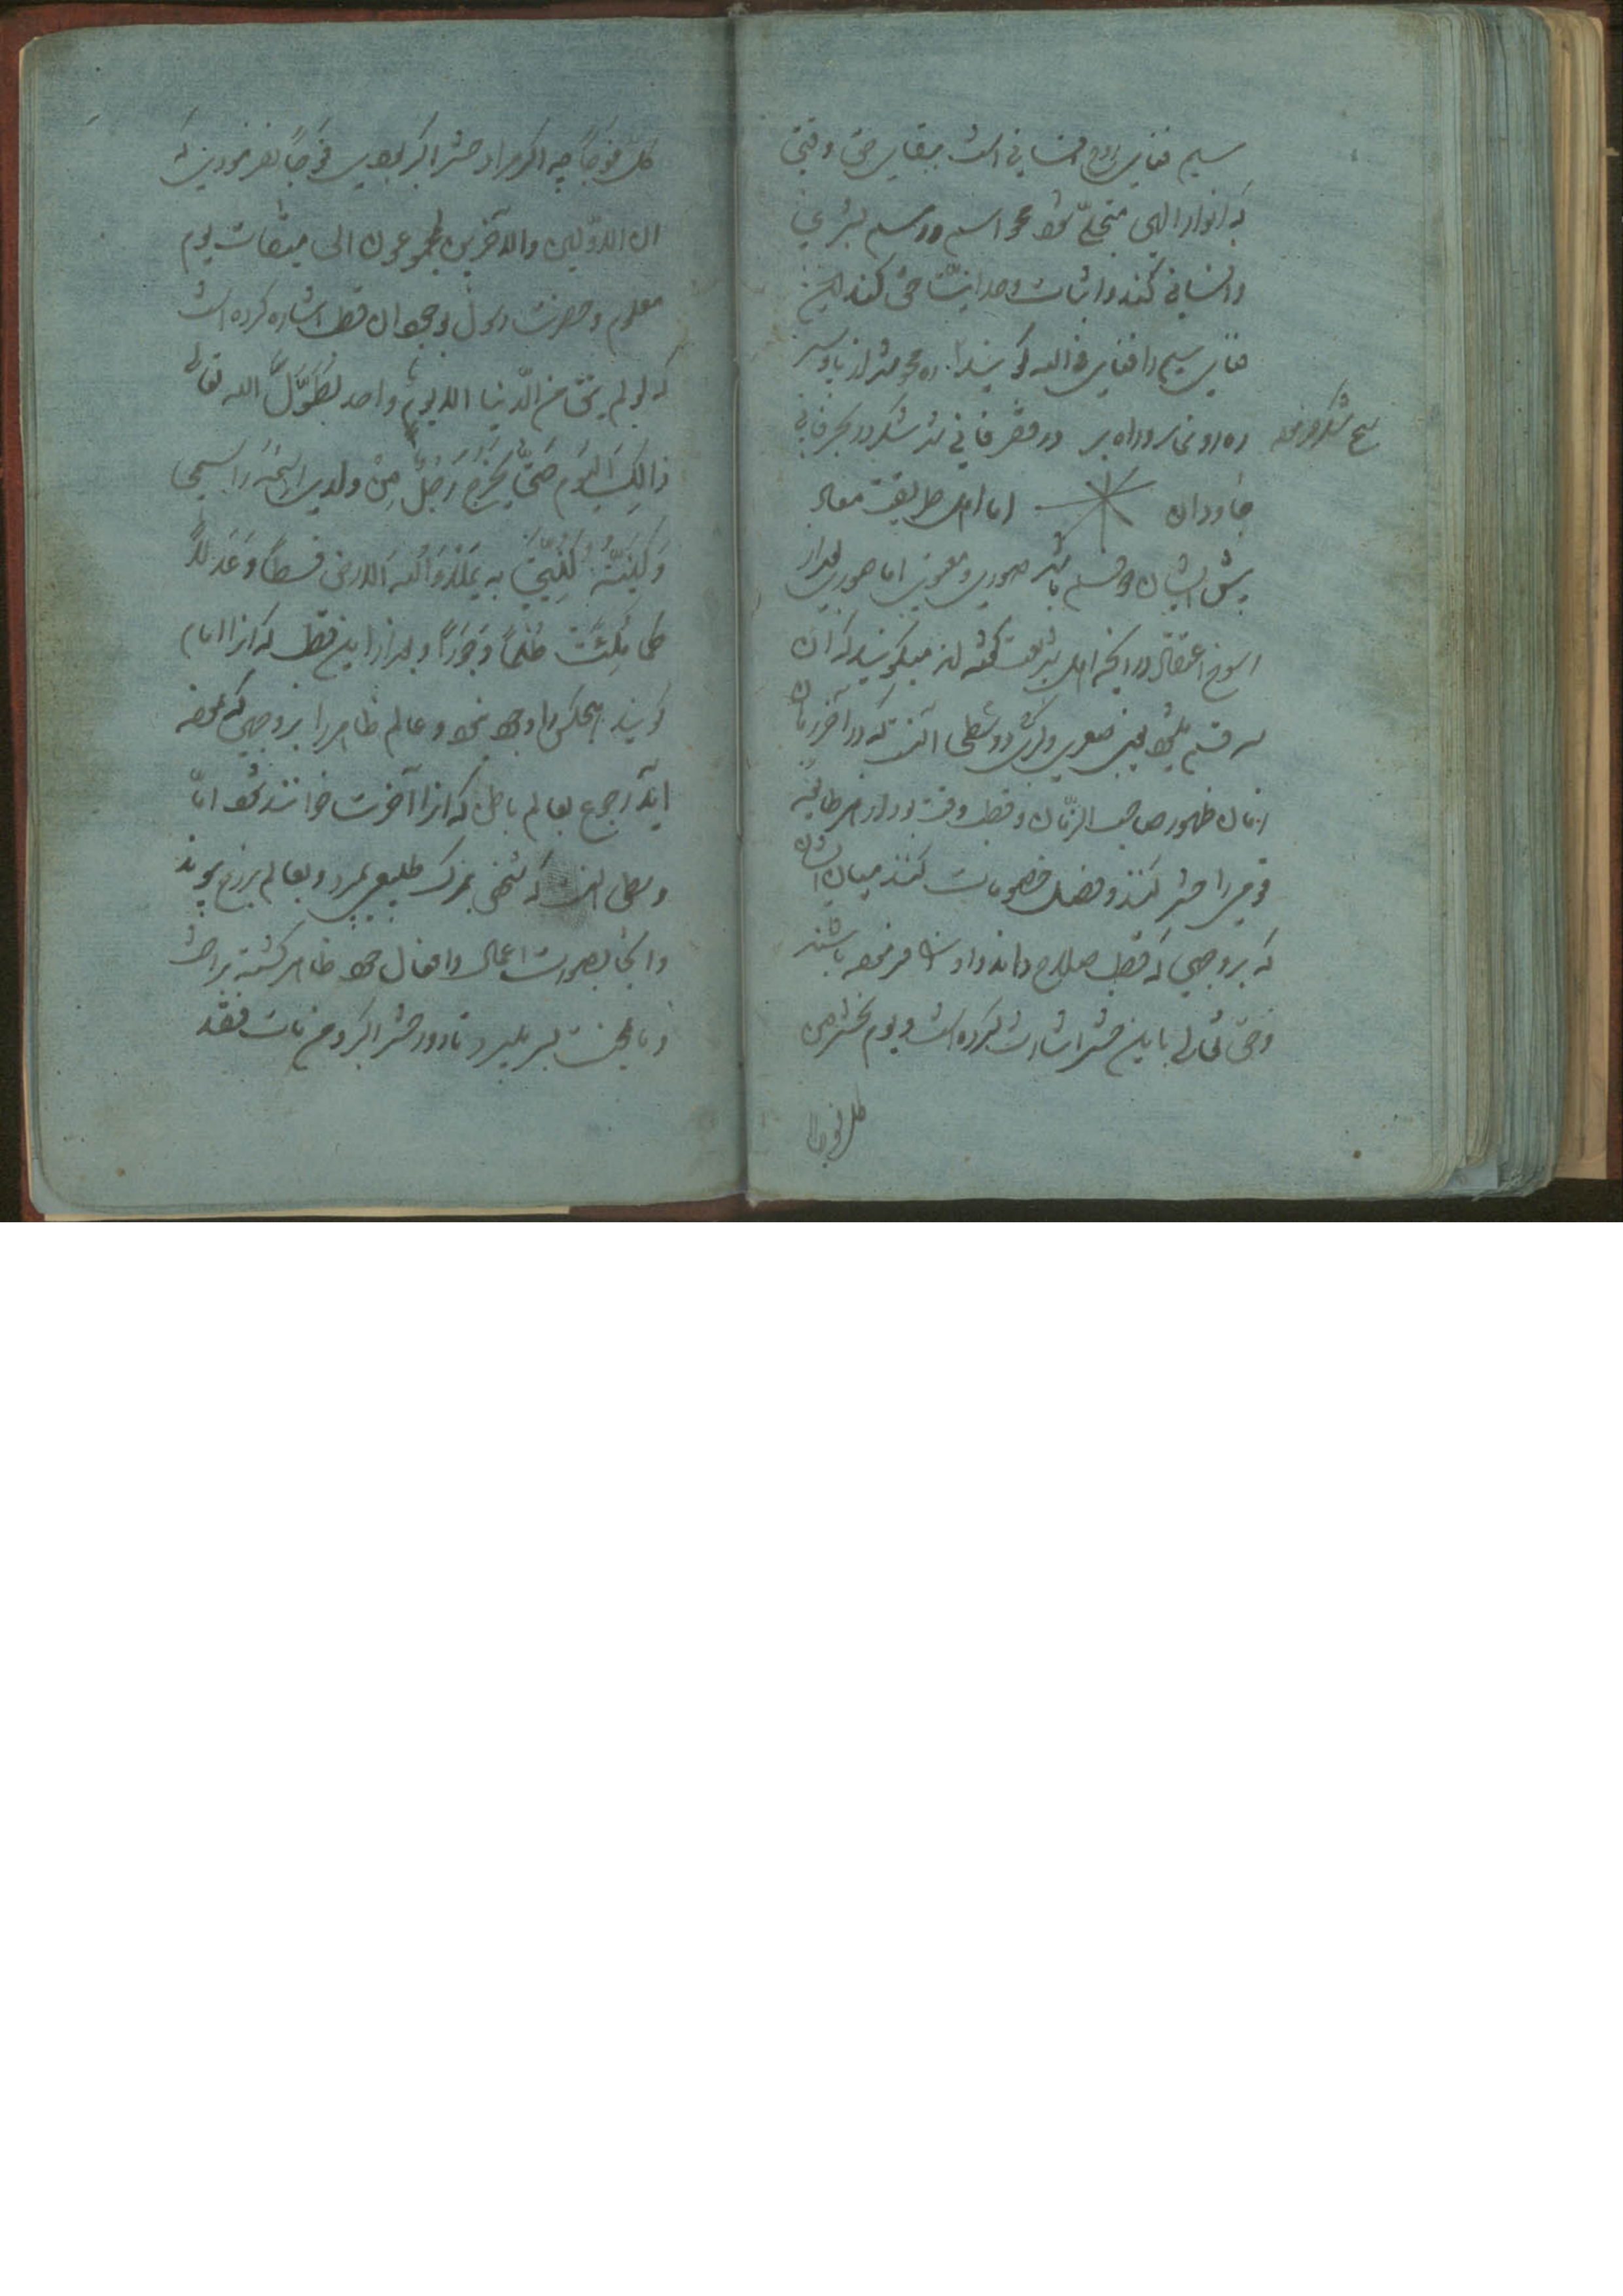 سیم فنای روح انسانی است ببقای حق وقتی
که انوار الهی متجلّی شود محو اسم و رسم بشری
و انسانی کند و اثبات وحدانیّت حق کند این
فنای سیم را فنای فی الله گویند
در بحر فانی
جاودان اما اهل طریقت معاد
پیش ایشان دو قسم باشد صوری و معنوی اما صوری بعد از
رسوخ اعتقاد در آنچه اهل شریعت گفته اند میگویند که آن
سه قسم میشود یعنی صغری و کبری و وسطی آنست که در آخر زمان
زمان ظهور صاحب الزّمان و قطب وقت بود از هر طایفه
قومی را حشر کنند و فصل خصومات کنند میان ایشان
که بر وجهی که قطب صلاح داند و او را فرموده باشند
و حق تعالی باین حشر اشارت کرده است و یوم نحشر من
کل فوجا
کلّ فوجاً چه اگر مراد حشر اکبر بودی فوجاً نفرمودی که
ان الاوّلین والآخرین لمجموعون الی میقات یوم
معلوم و حضرت رسول بوجود آن قطب اشاره کرده است
که لو لم یبق من الدّنیا الا یوم واحد لطوّل الله تعالی
ذالک الیوم حتّی یخرج رجلٌ من ولدی اسمه اسمی
و کنیته کنیتی به یملأ الله الارض قسطاً و عدلاً
کما ملئت ظلماً و جوراً و بعد از این قطب که او را امام
گویند هیچکس را وجود نبود و عالم ظاهر را بر وجهی که بوده
آید رجوع بعالم باطن که او را آخرت خوانند شود امّا
وسطی آنست که شخصی بمرگ طبیعی بمیرد و بعالم برزخ پیوندد
و آنجا بصورت اعمال و افعال خود ظاهر گشته
تا روز حشر اکبر و من مات فقد